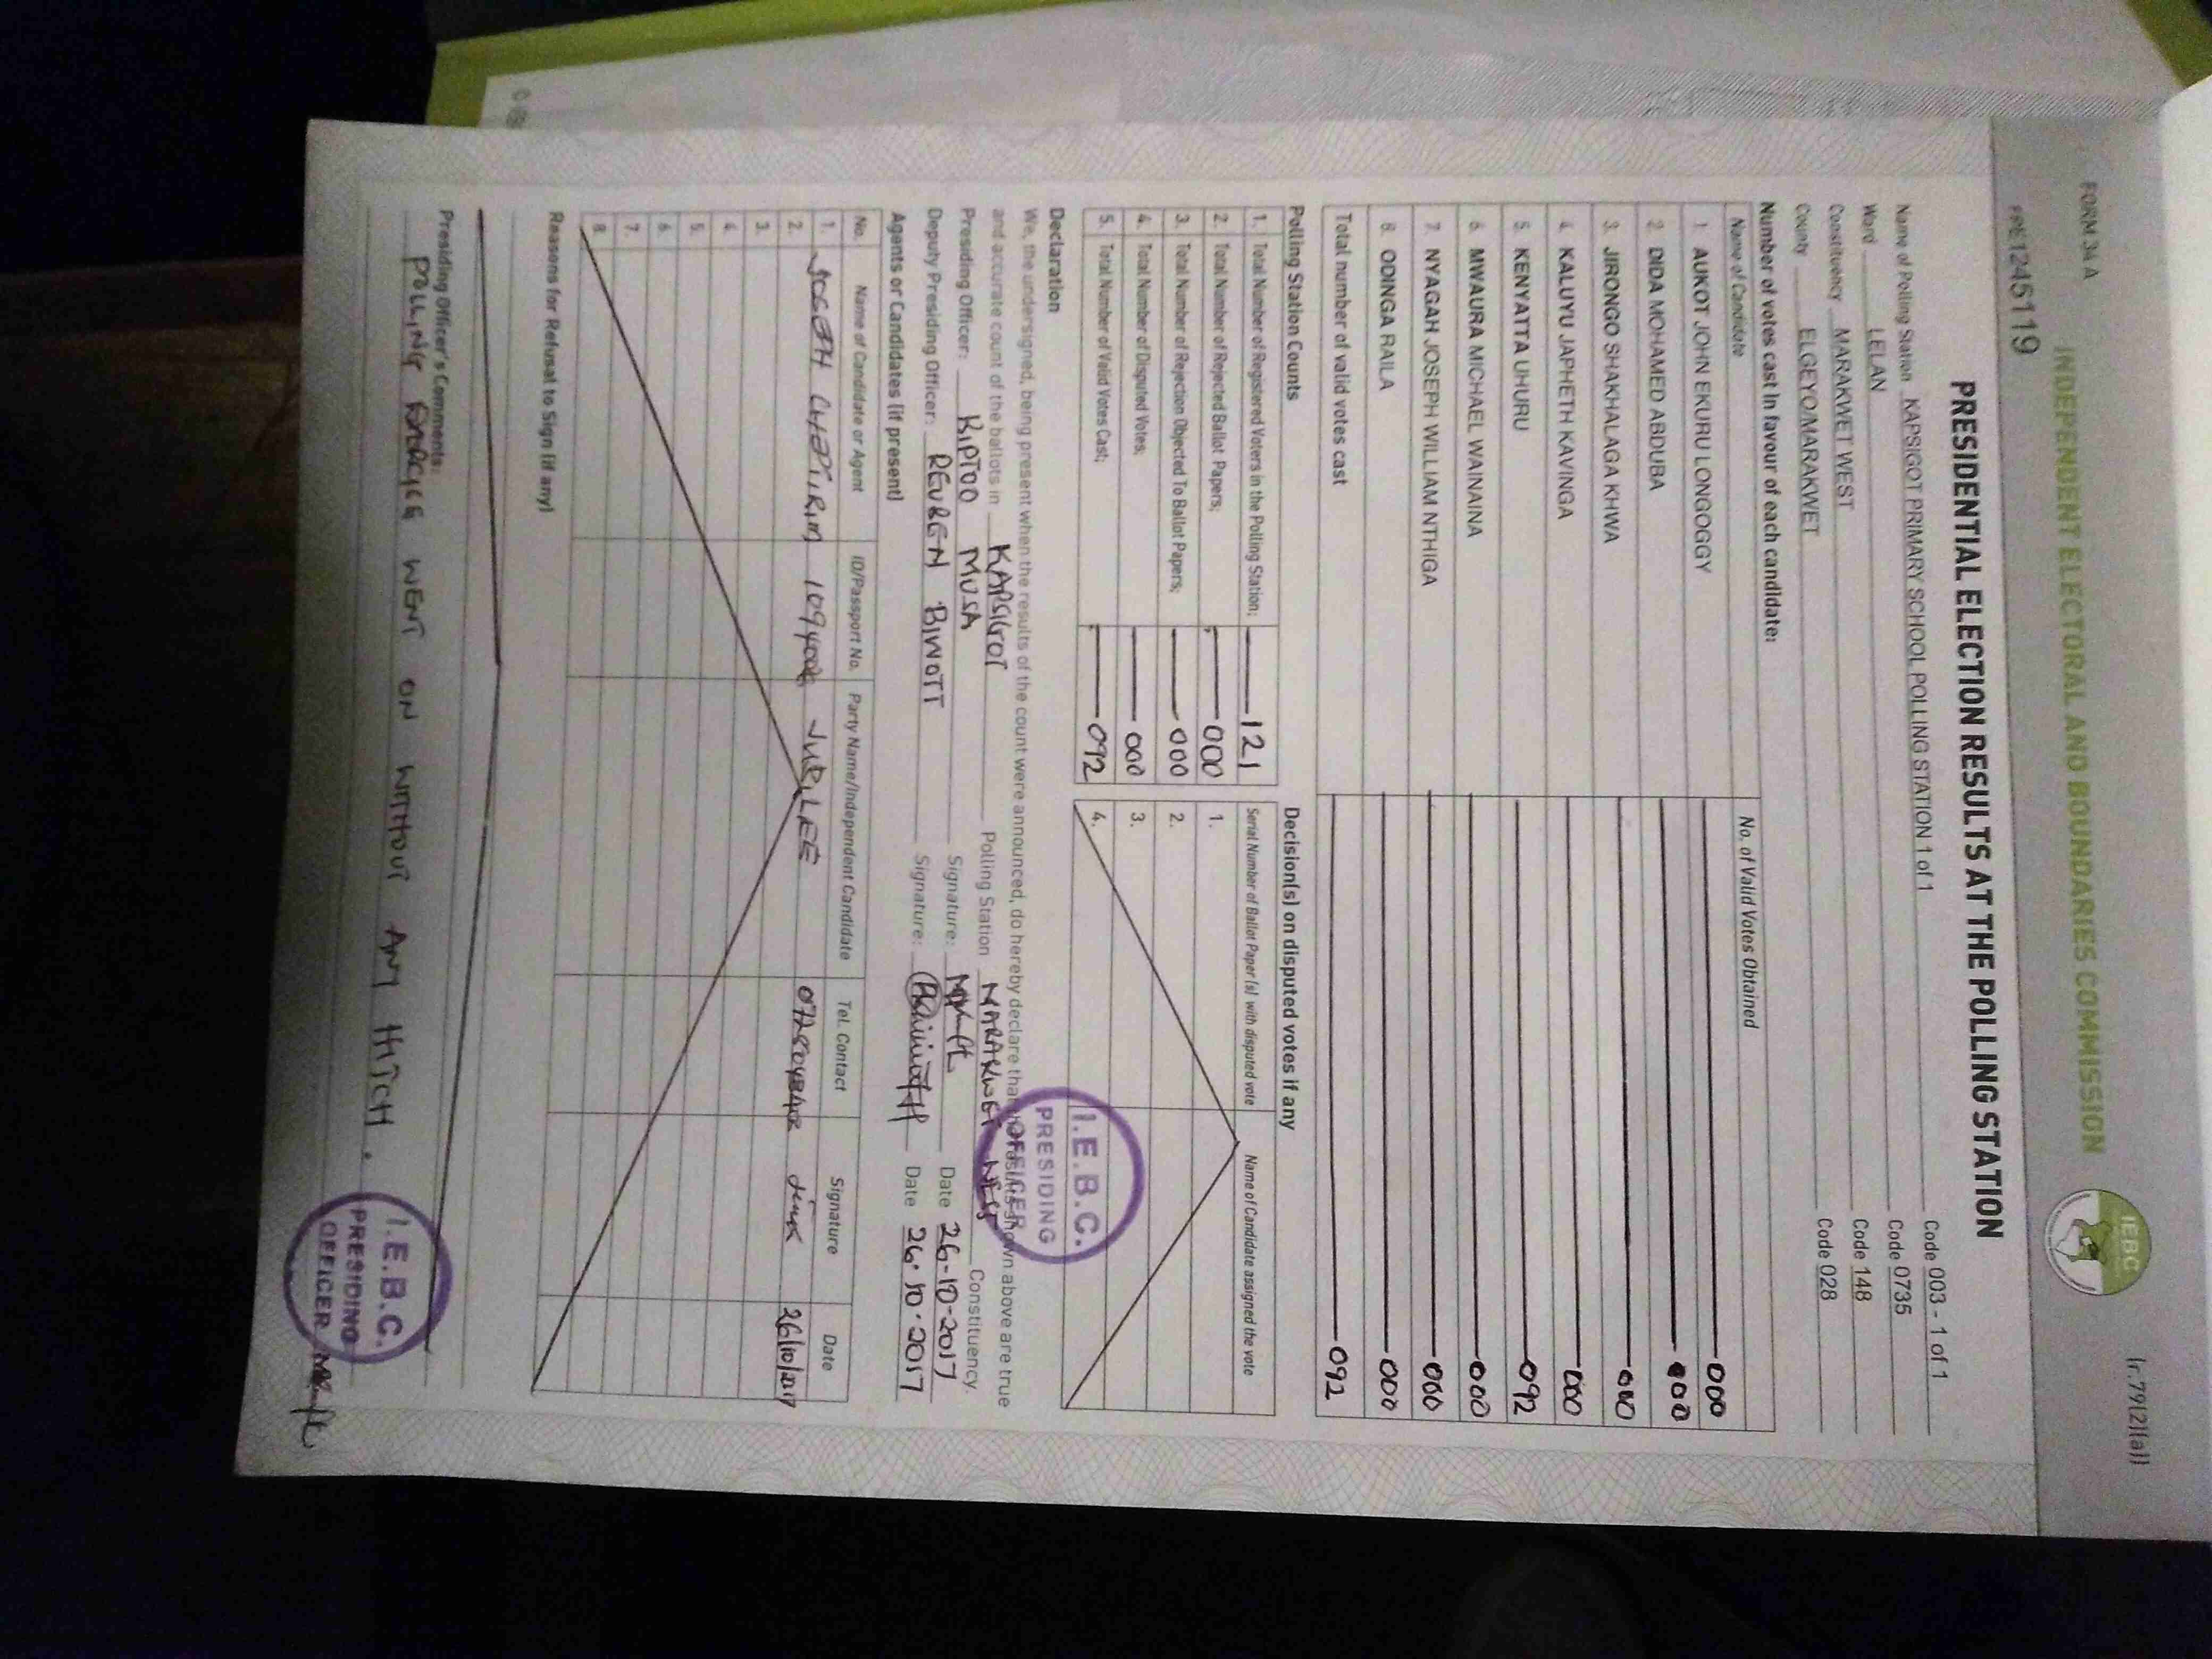 FORM 34 A
(r.79(2)(a))
INDEPENDENT ELECTORAL AND BOUNDARIES COMMISSION
IEBC
PRE1245119
PRESIDENTIAL ELECTION RESULTS AT THE POLLING STATION
Name of Polling Station KAPSIGOT PRIMARY SCHOOL POLLING STATION 1 of 1 Code 003 - 1 of 1
Ward LELAN Code 0735
Constituency MARAKWET WEST Code 148
County ELGEYO/MARAKWET Code 028
Number of votes cast in favour of each candidate:
Name of Candidate No. of Valid Votes Obtained
1 AUKOT JOHN EKURU LONGOGGY 000
2 DIDA MOHAMED ABDUBA 000
3. JIRONGO SHAKHALAGA KHWA 000
4 KALUYU JAPHETH KAVINGA 000
5 KENYATTA UHURU 092
6 MWAURA MICHAEL WAINAINA 000
7 NYAGAH JOSEPH WILLIAM NTHIGA 000
8. ODINGA RAILA 000
Total number of valid votes cast 092
Polling Station Counts
1. Total Number of Registered Voters in the Polling Station; 121
2. Total Number of Rejected Ballot Papers; 000
3. Total Number of Rejection Objected To Ballot Papers; 000
4. Total Number of Disputed Votes; 000
5. Total Number of Valid Votes Cast; 092
Decision(s) on disputed votes if any
Serial Number of Ballot Paper (s) with disputed vote Name of Candidate assigned the vote
1.
2.
3.
4.
Declaration
We, the undersigned, being present when the results of the count were announced, do hereby declare that the results shown above are true
and accurate count of the ballots in KAPSIGOT Polling Station MARAKWET WEST Constituency.
Presiding Officer: KIPTOO MUSA Signature: Date 26-10-2017
Deputy Presiding Officer: REUBEN BIWOTT Signature: Date 26.10.2017
I.E.B.C.
PRESIDING
OFFICER
Agents or Candidates (if present)
No. Name of Candidate or Agent ID/Passport No. Party Name/Independent Candidate Tel. Contact Signature Date
1. JOSEPH JUBILEE 26/10/2017
2.
3.
4.
5.
6.
7.
8.
Reasons for Refusal to Sign (if any)
Presiding Officer's Comments:
POLLING WENT ON WITHOUT ANY HITCH.
I.E.B.C.
PRESIDING
OFFICER